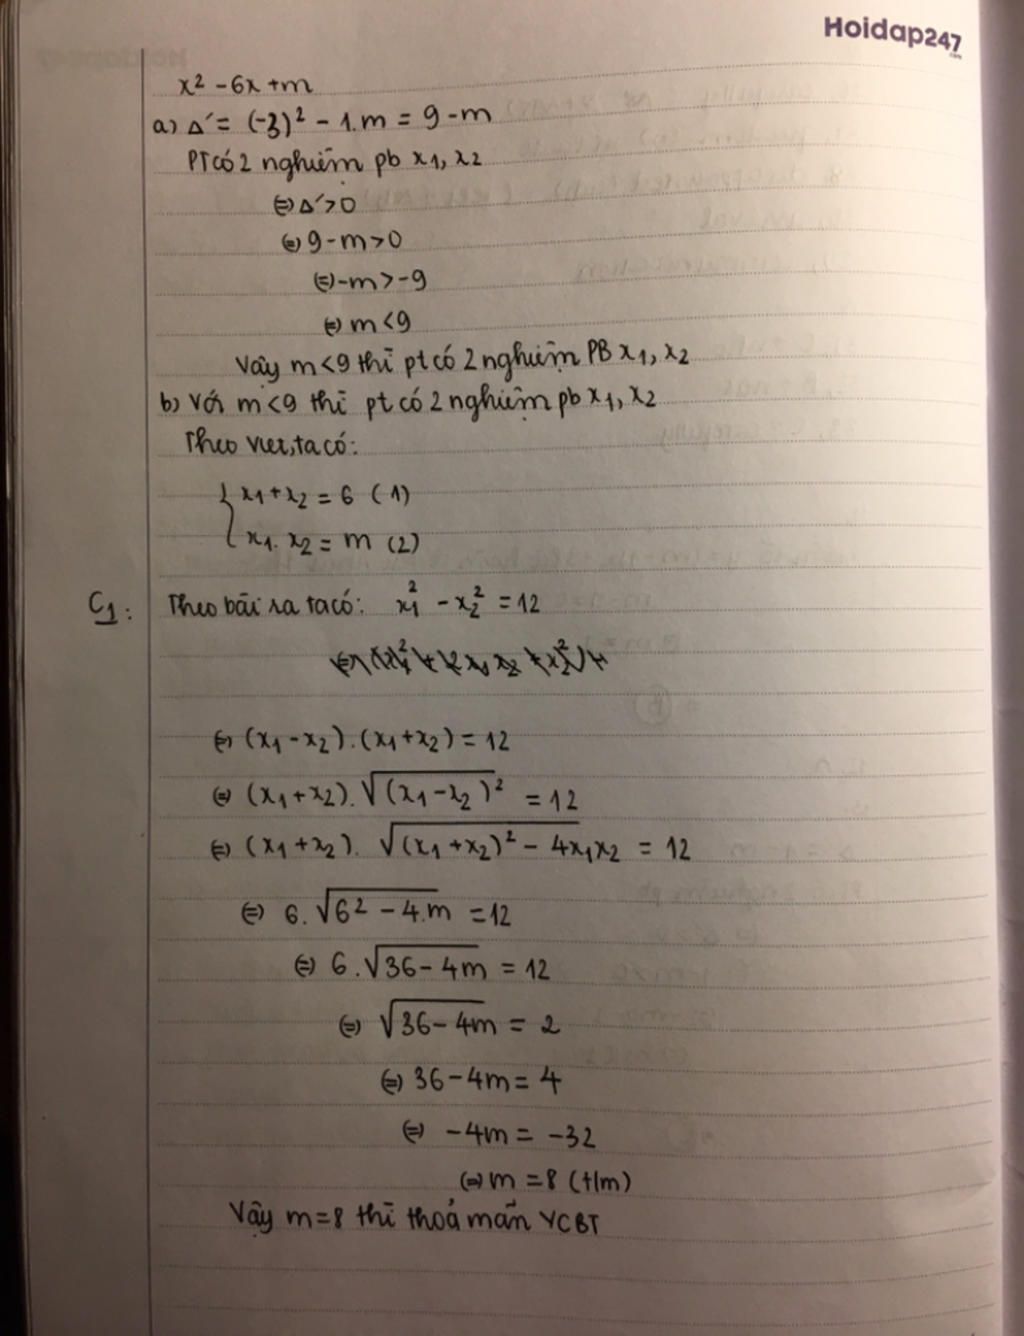 Hoidap247
.com
x² - 6x + m
a) Δ' = (-3)² - 1.m = 9 - m
PT có 2 nghiệm pb x₁, x₂
⇔ Δ' > 0
⇔ 9 - m > 0
⇔ -m > -9
⇔ m < 9
Vậy m < 9 thì pt có 2 nghiệm PB x₁, x₂
b) Với m < 9 thì pt có 2 nghiệm pb x₁, x₂
Theo Viet, ta có:
{ x₁ + x₂ = 6 (1)
x₁. x₂ = m (2)
C1: Theo bài ra ta có: x₁² - x₂² = 12
⇔ (x₁ - x₂).(x₁ + x₂) = 12
⇔ (x₁ + x₂). √(x₁ - x₂)² = 12
⇔ (x₁ + x₂). √(x₁ + x₂)² - 4x₁x₂ = 12
⇔ 6. √6² - 4.m = 12
⇔ 6. √36 - 4m = 12
⇔ √36 - 4m = 2
⇔ 36 - 4m = 4
⇔ -4m = -32
⇔ m = 8 (t/m)
Vậy m = 8 thì thoả mãn YCBT